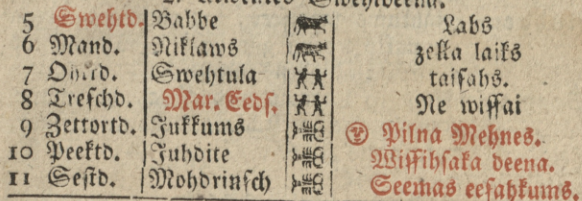 5 Swehtd. Babbe Labs
6 Mand. Niklaws zella laiks
7 Ohtrd. Swehtula taisahs.
8 Treschd. Mar. Eeds. Ne wissai
9 Zettortd. Jukkums Pilna Mehnes.
10 Peektd. Juhdite Wissihsaka deena.
11 Sestd. Mohdrinsch Seemas eesahkums.